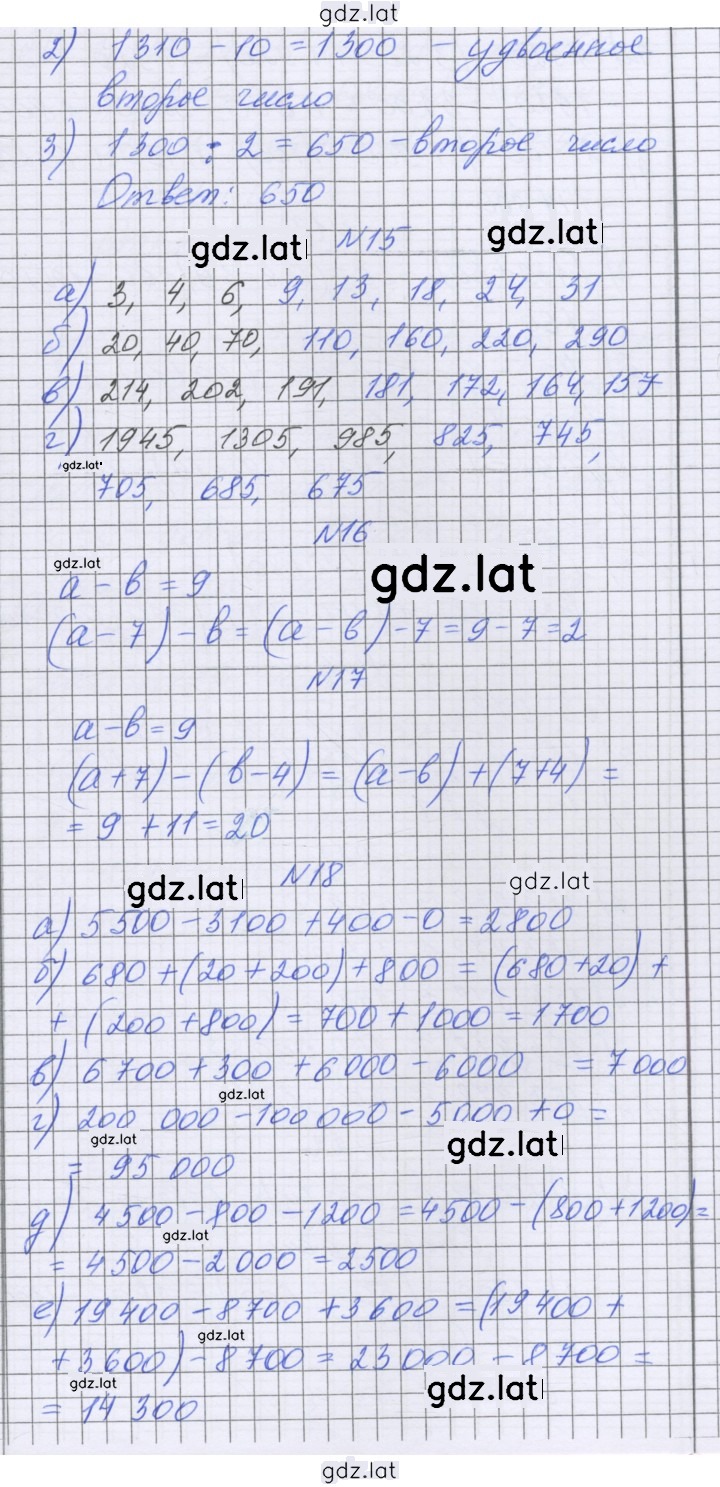 gdz.lat
2) 1310 - 10 = 1300 - удвоенное
второе число
3) 1300 : 2 = 650 - второе число
Ответ: 650
gdz.lat N15 gdz.lat
а) 3, 4, 6, 9, 13, 18, 24, 31
б) 20, 40, 70, 110, 160, 220, 290
в) 214, 202, 191, 181, 172, 164, 157
г) 1945, 1305, 985, 825, 745,
gdz.lat
705, 685, 675
N16
gdz.lat gdz.lat
a - b = 9
(a - 7) - b = (a - b) - 7 = 9 - 7 = 2
N17
a - b = 9
(a + 7) - (b - 4) = (a - b) + (7 + 4) =
= 9 + 11 = 20
gdz.lat N18 gdz.lat
а) 5500 - 3100 + 400 - 0 = 2800
б) 680 + (20 + 200) + 800 = (680 + 20) +
+ (200 + 800) = 700 + 1000 = 1700
в) 6700 + 300 + 6000 - 6000 = 7000
gdz.lat
г) 200 000 - 100 000 - 5000 + 0 =
gdz.lat gdz.lat
= 95 000
д) 4500 - 800 - 1200 = 4500 - (800 + 1200) =
gdz.lat
= 4500 - 2000 = 2500
е) 19 400 - 8700 + 3600 = (19 400 +
gdz.lat
+ 3600) - 8700 = 23 000 - 8700 =
gdz.lat gdz.lat
= 14 300
gdz.lat